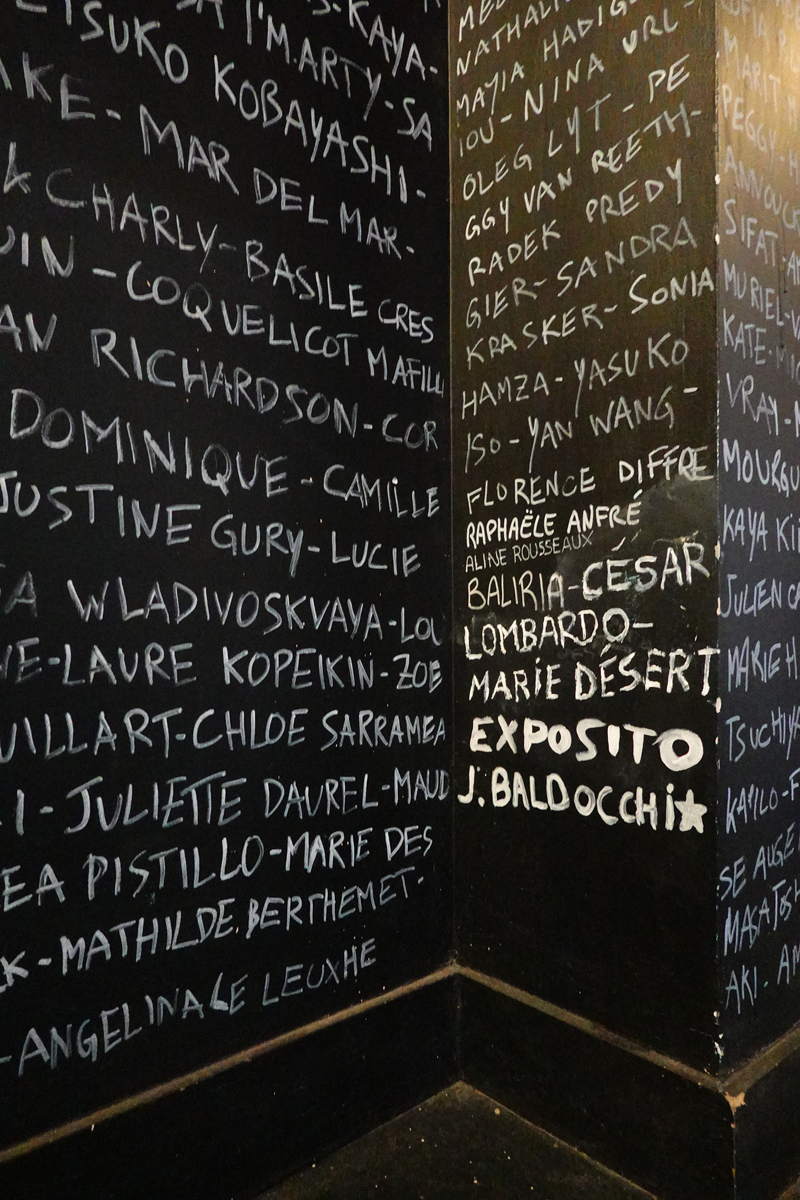 S-KAYA-
I'M.ARTY-SA
TSUKO KOBAYASHI-
AKE-MAR DEL MAR-
A CHARLY-BASILE CRES
UIN-COQUELICOT MAFILL
AN RICHARDSON-COR
DOMINIQUE-CAMILLE
JUSTINE GURY-LUCIE
WLADIVOSKVAYA-LOU
NE-LAURE KOPEIKIN-ZOE
UILLART-CHLOE SARRAMEA
I-JULIETTE DAUREL-MAUD
EA PISTILLO-MARIE DES
K-MATHILDE BERTHEMET-
-ANGELINA LE LEUXHE
NATHALI
MAYIA HADIG
IOU-NINA URL-
OLEG LYT-PE
GGY VAN REETH-
RADEK PREDY
GIER-SANDRA
KRASKER-SONIA
HAMZA-YASUKO
ISO-YAN WANG-
FLORENCE DIFFRE
RAPHAËLE ANFRÉ
ALINE ROUSSEAUX
BALIRIA-CÉSAR
LOMBARDO-
MARIE DÉSERT
EXPOSITO
J.BALDOCCHI★
MARIT
PEGGY-H
ANNOUCK
SIFAT-A
MURIEL-V
KATE-MIC
VRAY-
MOURGU
KAYA KI
JULIEN CA
MARIE H
TSUCHIYA
KAMILO-F
SE AUGE
MASATOSH
AKI-AM